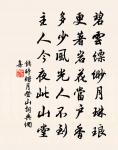 碧雲縹緲月琳琅
更著名花當戶香
多少風光人不到
主人今夜此山堂
錢時 月登山